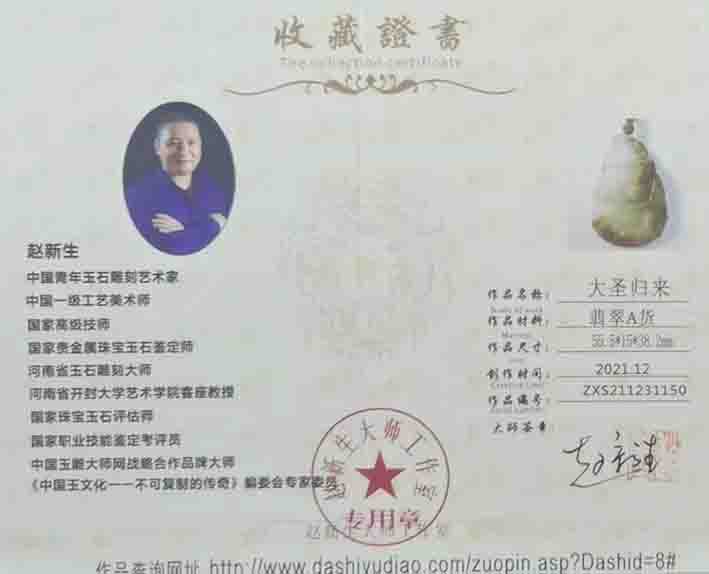 收藏證書
The collection certificate
赵新生
中国青年玉石雕刻艺术家
中国一级工艺美术师
国家高级技师
国家贵金属珠宝玉石鉴定师
河南省玉石雕刻大师
河南省开封大学艺术学院客座教授
国家珠宝玉石评估师
国家职业技能鉴定考评员
中国玉雕大师网战略合作品牌大师
《中国玉文化一一不可复制的传奇》编委会专家委员
作品名称： 大圣归来
作品材料： 翡翠A货
作品尺寸： 55.5*15*38.2mm
创作时间： 2021.12
作品编号： ZXS211231150
大师签章：
赵新生大师工作室
专用章
赵新生大师工作室
作品查询网址 http://www.dashiyudiao.com/zuopin.asp?Dashid=8#